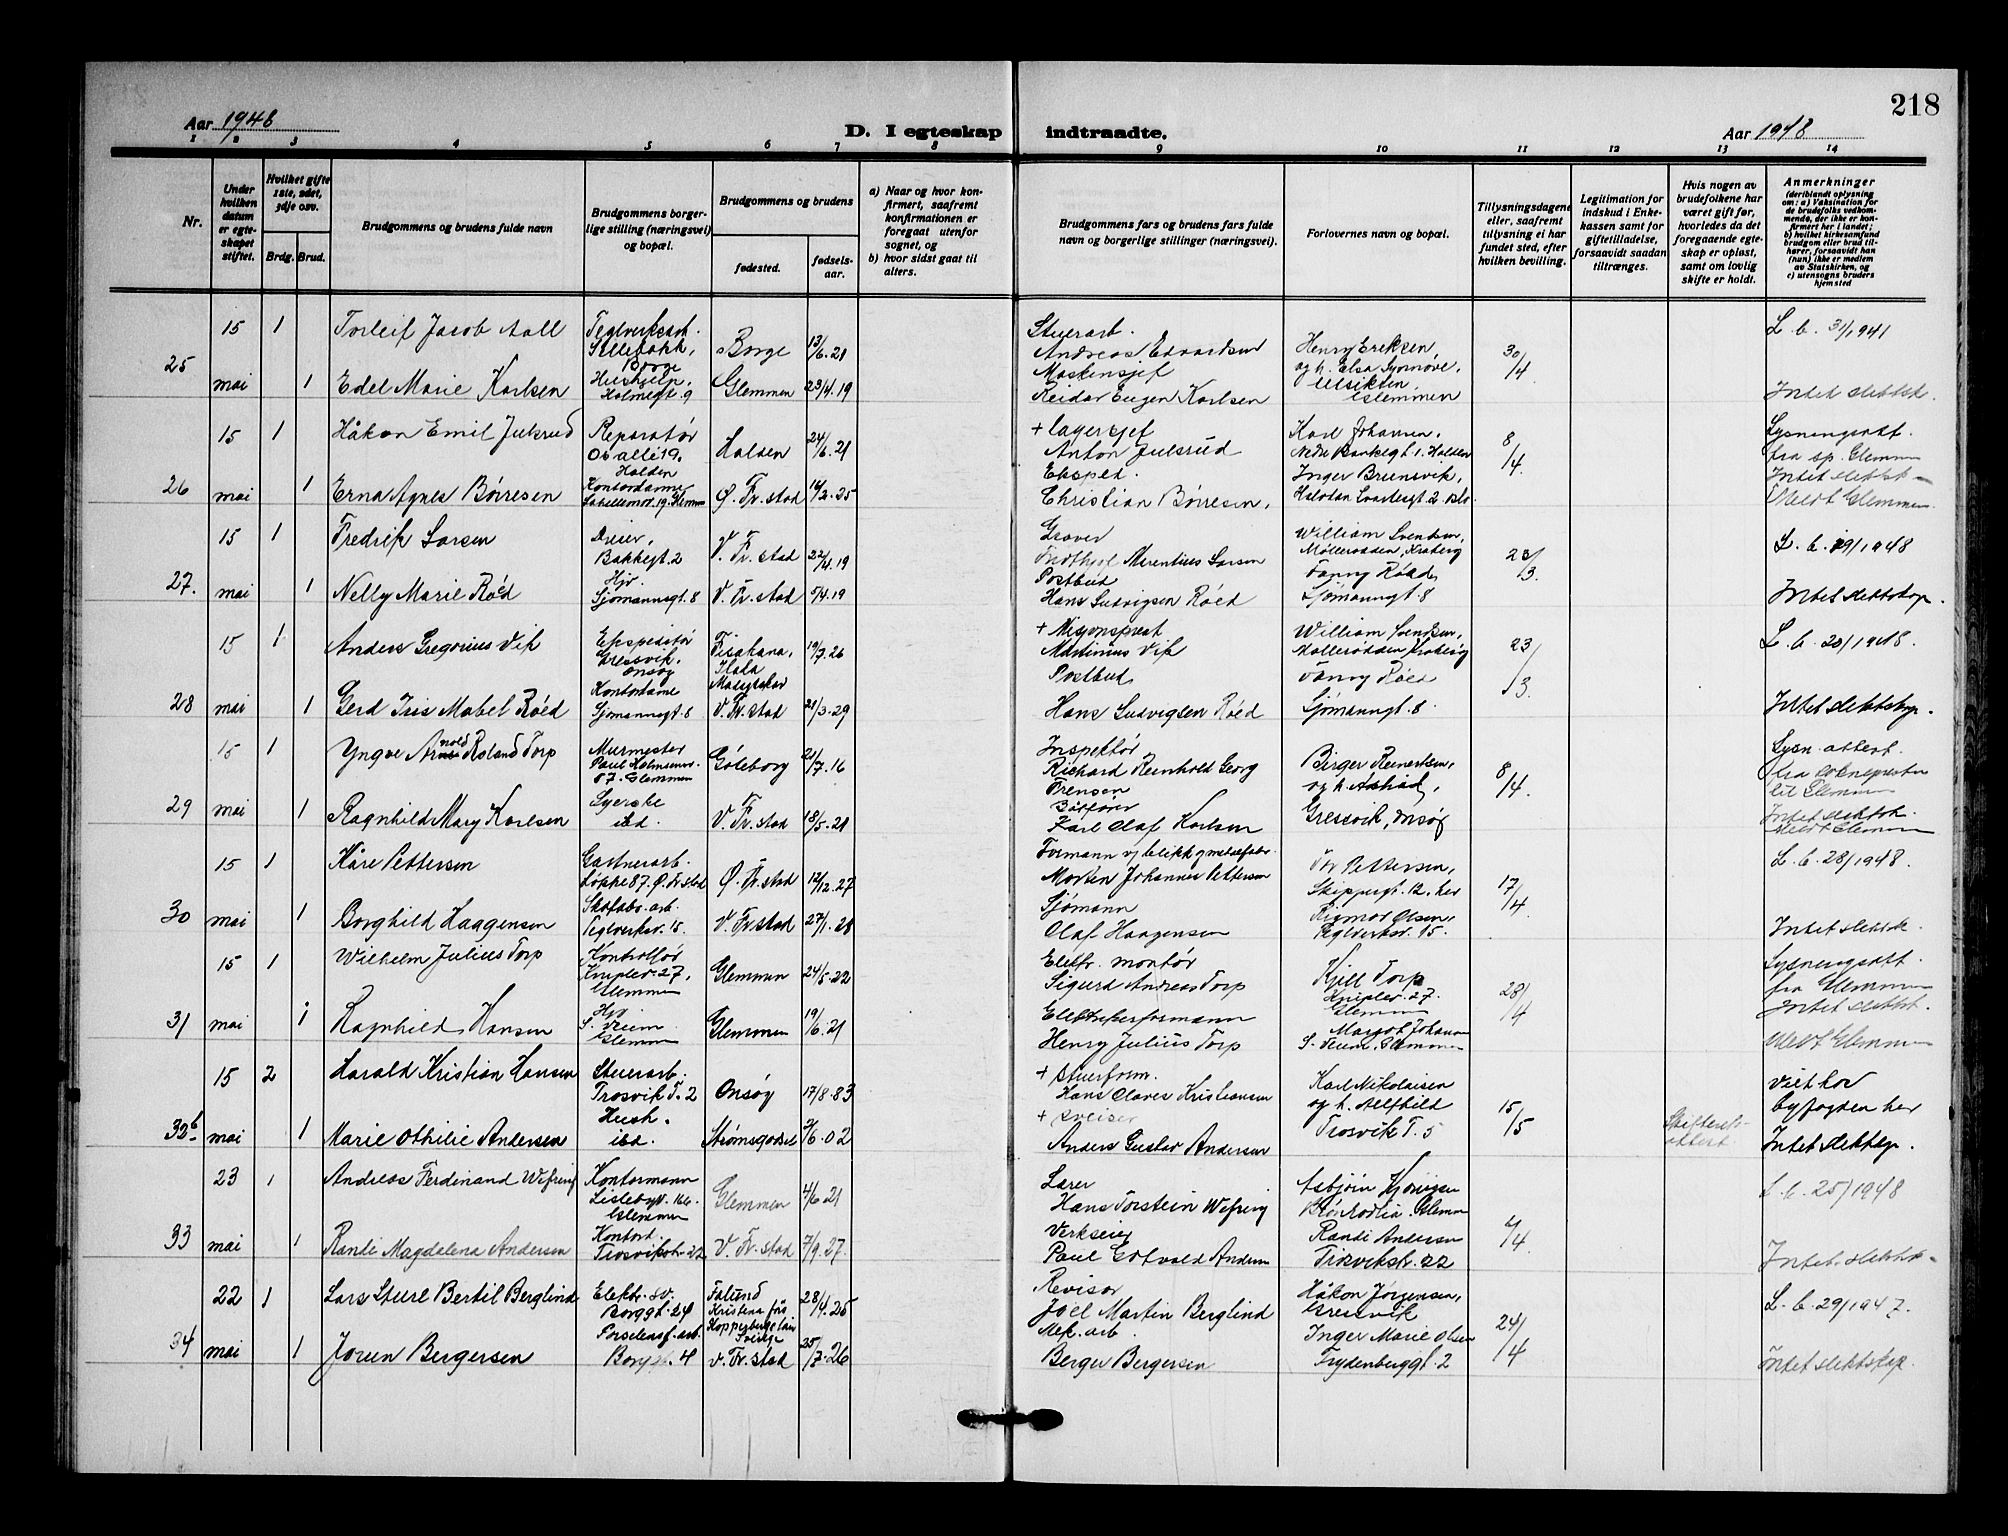 218
Aar 1948
D. I egteskap indtraadte.
Aar 1948
1 2 3 4 5 6 7 8 9 10 11 12 13 14
Nr.
Under hvilken datum er egteskapet stiftet.
Hvilket gifte 1ste, 2det, 3dje osv.
Brdg. Brud.
Brudgommens og brudens fulde navn
Brudgommens borgerlige stilling (næringsvei) og bopæl.
Brudgommens og brudens
fødested.
fødselsaar.
a) Naar og hvor konfirmert, saafremt konfirmationen er foregaat utenfor sognet, og
b) hvor sidst gaat til alters.
Brudgommens fars og brudens fars fulde navn og borgerlige stillinger (næringsvei).
Forlovernes navn og bopæl.
Tillysningsdagene eller, saafremt tillysning ei har fundet sted, efter hvilken bevilling.
Legitimation for indskud i Enkekassen samt for giftetilladelse, forsaavidt saadan tiltrænges.
Hvis nogen av brudefolkene har været gift før, hvorledes da det foregaaende egteskap er opløst, samt om lovlig skifte er holdt.
Anmerkninger
(deriblandt oplysning om: a) Vaksination for de brudefolks vedkommende, der ikke er konfirmert her i landet; b) hvilket kirkesamfund brudgom eller brud tilhører, forsaavidt han (hun) ikke er medlem av Statskirken, og c) utensogns bruders hjemsted
25
15 1 Torleif Jacob Aall
Teglverksarb. Sellebakk, Borge
Borge 13/6.21
Stuerarb.
Andreas Edvardsen
Henry Eriksen og h. Elsa Synnøve, Utsikten, Glemmen
30/4
L. b. 31/1941
mai 1 Edel Marie Karlsen
Hushjelp, Holmegt. 9
Glemmen 23/4.19
Maskinsjef
Reidar Eugen Karlsen
Intet slektsk.
26
15 1 Håkon Emil Julsrud
Reparatør
Os allé 19, Halden
Halden 24/6.21
+ lagersjef
Anton Julsrud
Karl Johansen,
Nedre Bankegt. 1. Halden
8/4
Lysningsatt. fra sp. Glemmen
mai 1 Erna Agnes Børresen
Kontordame
Ø. Fr.stad 14/2.25
Eksped.
Christian Børresen,
Inger Brunsvik,
Halvdan Svartesgt 2. Oslo
Intet slektsk
Meldt Glemmen
27.
15 1 Fredrik Larsen
Dreier, Bakkegt. 2
V. Fr. stad 22/4.19
Graver
Marentius Larsen
William Svendsen,
Møllerodden, Kråkerøy
23/3.
L. b. 19/1948
mai 1 Nelly Marie Røed
Hjv. Sjømannsgt. 8
V. Fr. stad 5/4.19
Postbud
Hans Ludvigsen Røed
Fanny Røed,
Sjømannsgt. 8
Intet slektskap.
28
15 1 Anders Gregorius Vik
Ekspeditør
Gressvik. Onsøy
Fisakana, Madagaskar
19/7.26
+ Misjonsprest
Martinius Vik
William Svendsen,
Møllerodden Kråkerøy
23/3
L. b. 20/1948.
mai 1 Gerd Iris Mabel Røed
Kontordame
Sjømannsgt. 8
V. Fr. stad 21/3.29
Postbud
Hans Ludvigsen Røed
Fanny Røed
Sjømanngt. 8.
Intet slektskap.
29
15 1 Yngve Arnold Roland Torp
Murmester
Paul Holmsensv. 87. Glemmen
Göteborg 21/7.16
Inspektør
Richard Reinhold Georg
Birger Reinertsen, og h. Astrid,
Gressvik, Onsøy
8/4.
Lysn. attest. fra soknepresten til Glemmen
mai 1 Ragnhild Mary Karlsen
Syerske ibd.
V. Fr. stad 18/5.21
Båtfører
Karl Olaf Karlsen
Intet slektsk.
Meldt Glemmen
30
15 1 Kåre Pettersen
Gartnerarb.
Løkka 87. Ø. Fr.stad
Ø. Fr. stad 12/12.27
Formann v/ blikk og metalfabr.
Morten Johannes Pettersen
Tor Pettersen,
Skippergt. 12, her
17/4
L. b. 28/1948.
mai 1 Borghild Haagensen
Skofabr. arb.
Teglverksv. 15.
V. Fr.stad 27/1.28
Sjømann
Olaf Haagensen
Rigmor Olsen,
Teglverksv. 15.
Intet slektsk.
31
15 1 Wilhelm Julius Torp
Kontrollør
Kniplev. 27, Glemmen
Glemmen 24/5.22
Elektr. montør
Sigurd Andreas Torp
Kjell Torp
Kniplev. 27. Glemmen
28/4
Lysningsatt. fra Glemmen
mai 1 Ragnhild Hansen
Hjv
S. Veum. Glemmen
Glemmen 19/6.21
Elektrikerformann
Henry Julius Torp
Margot Johansen
S. Veum, Glemmen
Intet slektsk.
Meldt Glemmen
32b
15 2 Harald Kristian Hansen
Stuerarb.
Trosvik T. 2
Onsøy 17/8.83
+ Stuerform.
Hans Claves Kristiansen
Karl Nikolaisen
og h. Alfhild
Trosvik T. 5
15/5
Skifteretsattest.
Viet hos byfogden her
mai 1 Marie Othilie Andersen
Hush. ibd.
Strømsgodset 2/6.02
+ Sveiser
Anders Gustav Andersen
Intet slektsk.
33
23 1 Andreas Ferdinand Wefring
Kontormann
Lislebyv. 166. Glemmen
Glemmen 4/6 21
Lærer
Hans Torstein Wefring
Asbjørn
Glemmen
4/4
L. b. 25/1948
mai 1 Randi Magdalena Andersen
Kontord.
Trosvikstr. 22
V. Fr. stad 7/9.27.
Verkseier
Paul Gotvald Andersen
Randi Andersen
Trosvikstr. 22
Intet slektsk
34
22 1 Lars Sture Bertil Berglind
Elektr. sv.
Borggt. 24
Falund Kristina förs. Kopparbergs län Sverige
28/4.25
Revisor
Joel Martin Berglind
Håkon Jørgensen,
Gressvik
24/4
L. b. 29/1947.
mai 1 Jorun Bergersen
Porselensf. arb.
Borggt. 4
V. Fr. stad 25/7.26
Mek. arb.
Berger Bergersen
Inger Marie Olsen
Frydenberggt. 2
Intet slektskap.